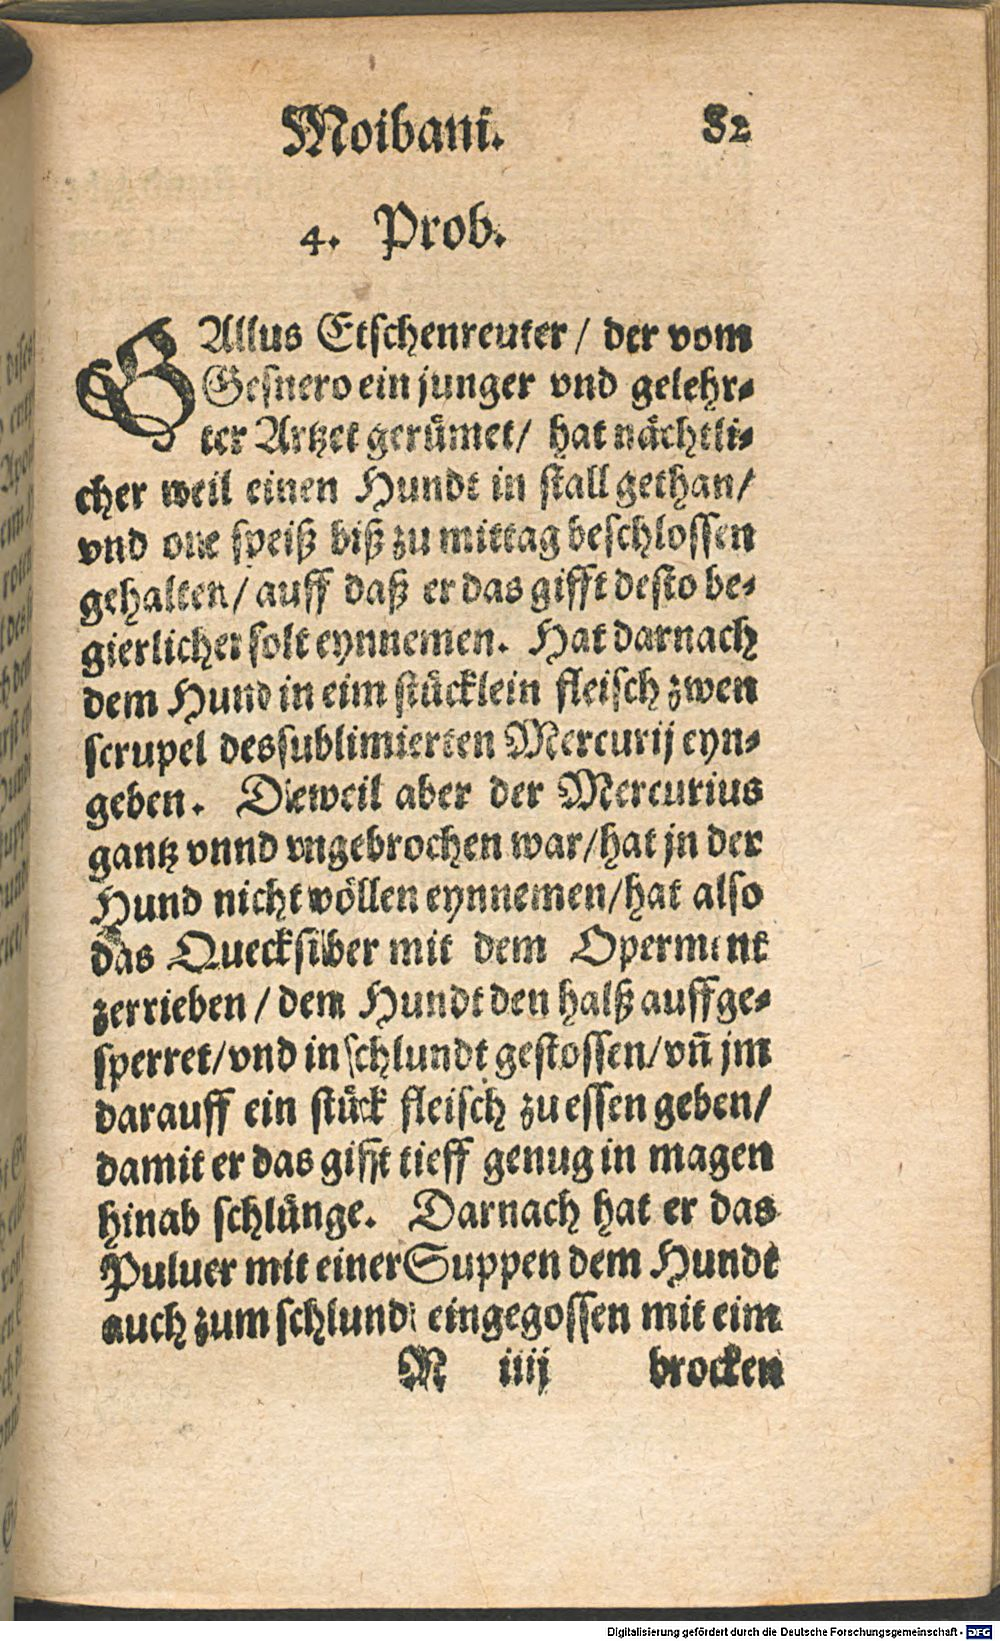 Moibani. 82
4. Prob.
GAllus Etschenreuter / der vom
Gesnero ein junger vnd gelehr-
ter Artzet gerümet / hat nächtli-
cher weil einen Hundt in stall gethan /
vnd one speiß biß zu mittag beschlossen
gehalten / auff daß er das gifft desto be-
gierlicher solt eynnemen. Hat darnach
dem Hund in eim stücklein fleisch zwen
scrupel des sublimierten Mercurij eyn-
geben. Dieweil aber der Mercurius
gantz vnnd vngebrochen war / hat jn der
Hund nicht wöllen eynnemen / hat also
das Quecksilber mit dem Operment
zerrieben / dem Hundt den halß auffge-
sperret / vnd in schlundt gestossen / vñ jm
darauff ein stück fleisch zu essen geben /
damit er das gifft tieff genug in magen
hinab schlünge. Darnach hat er das
Puluer mit einer Suppen dem Hundt
auch zum schlundt eingegossen mit eim
M iiij brocken
Digitalisierung gefördert durch die Deutsche Forschungsgemeinschaft - DFG